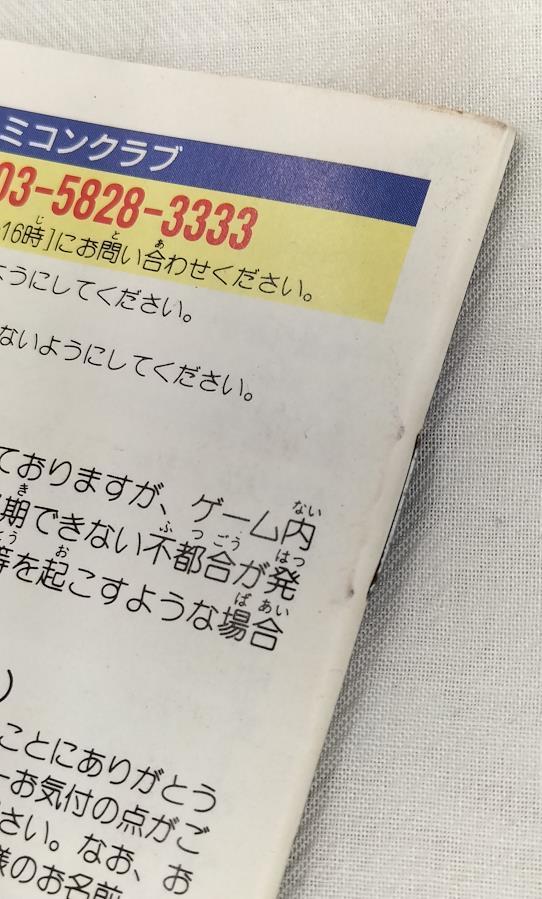 ミコンクラブ
03-5828-3333
16時]にお問い合わせください。
ようにしてください。
ないようにしてください。
ておりますが、ゲーム内
期できない不都合が発
等を起こすような場合
)
ことにありがとう
お気付の点がご
さい。なお、お
様のお名前